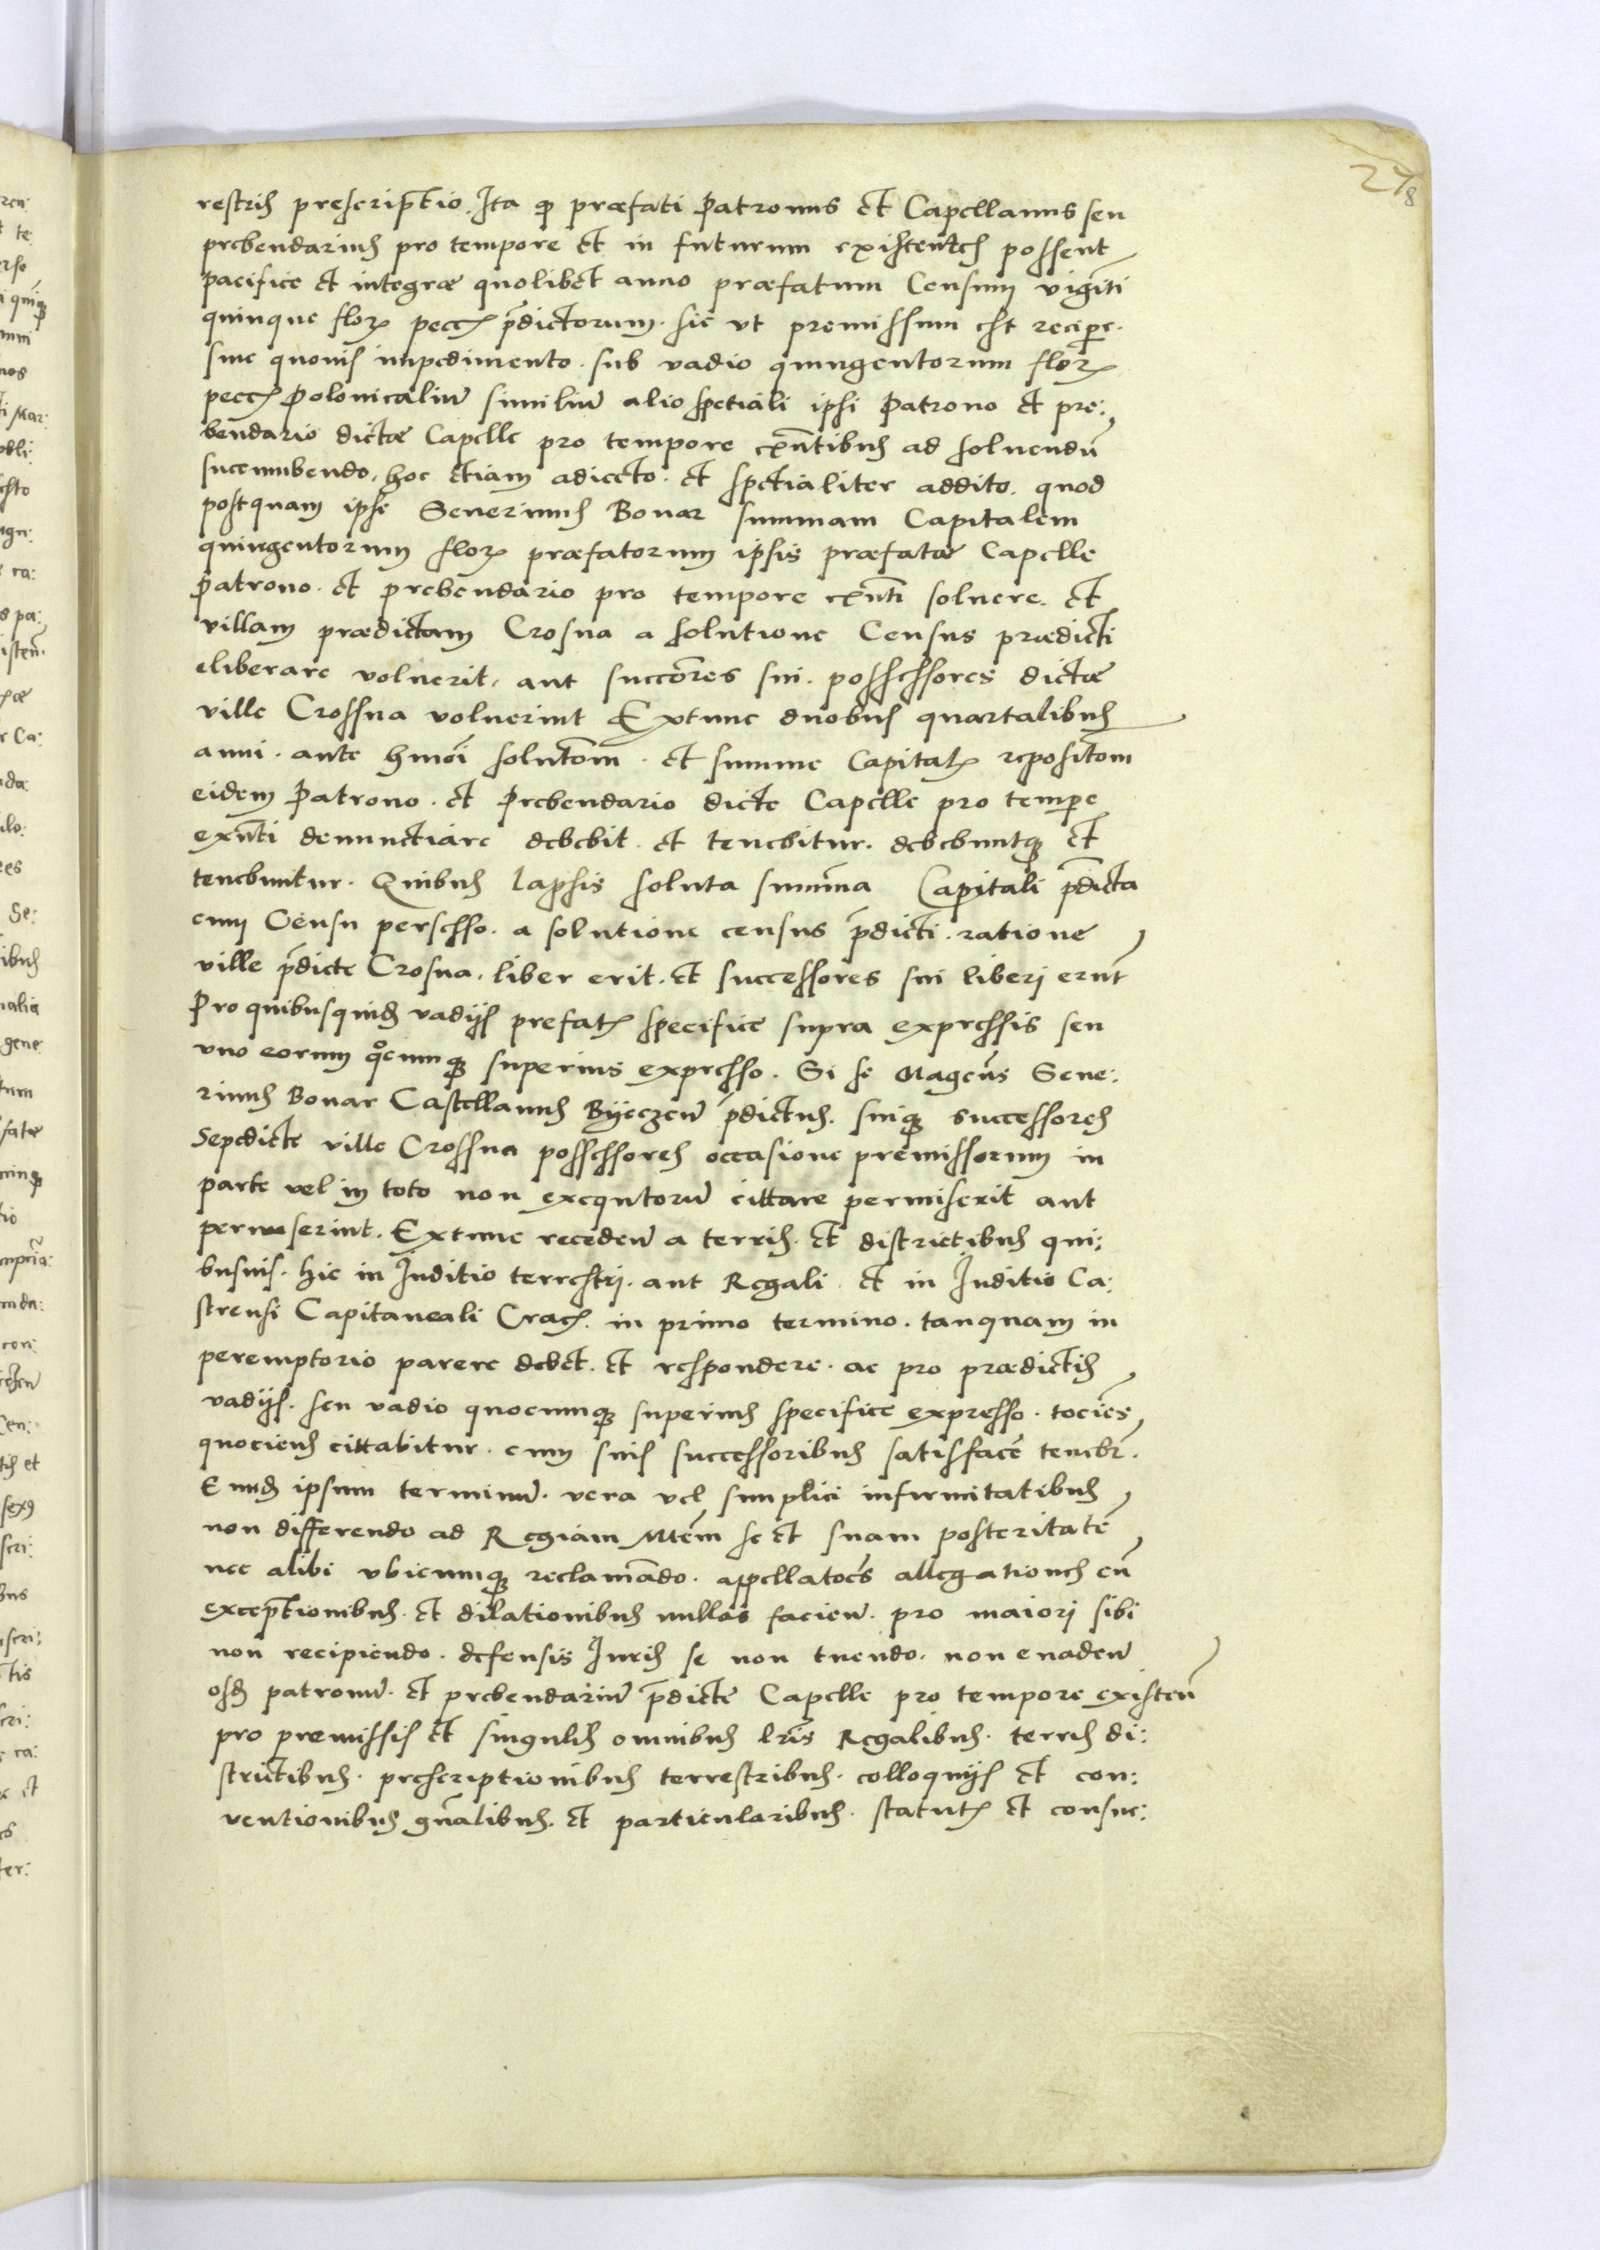 27
8
restris prescriptio. Ita ꝙ præfati Patronus et Capellanus seu
prebendarius pro tempore et in futurum existentes possent
pacifice et integræ quolibet anno præfatum Censum viginti
quinque floꝝ pecc̄ p̄dictorum. sic vt premissum est recipe.
sine quouis impedimento. sub vadio quingentorum floꝝ
pecc̄ Polonicaliū similiū alio spetiali ipsi Patrono et pre:
bendario dictæ Capelle pro tempore exn̄tibus ad soluendū
succumbendo. hoc etiam adiecto. et spetialiter addito. quod
postquam ipse Seuerinus Bonar summam Capitalem
quingentorum floꝝ præfatorum ipsis præfatæ Capelle
Patrono. et prebendario pro tempore exn̄ti soluere. et
villam prædictam Crosna a solutione Census prædicti
eliberare voluerit. aut succōres sui. possessores dictæ
ville Crossna voluerint Extunc duobus quartalibus
anni. ante hmōi solutōm. et summe Capitalꝫ repositōm
eidem Patrono. et Prebendario dicte Capelle pro tempe
exn̄ti denunctiare debebit. et tenebitur. debebuntqꝫ et
tenebuntur. Quibus lapsis soluta sum̄ma Capitali p̄dicta
cum Censu persesso. a solutione census p̄dicti. ratione
ville p̄dicte Crosna. liber erit. et successores sui liberi erūt
Pro quibusquidꝫ vadijs prefatꝫ specifice supra expressis seu
vno eorum qͦcumqꝫ superius expresso. Si se Magcūs Seue:
rinus Bonar Castellanus Byeczen̄ p̄dictus. suiqꝫ successores
Sepedicte ville Crossna possessores occasione premissorum in
parte vel in toto non exequtorū cittare permiserit aut
permiserint. Extunc receden̄ a terris. et districtibus qui:
busuis. hic in Inditio terrestri. aut Regali. et in Inditio Ca:
strensi Capitaneali Cracꝫ. in primo termino. tanquam in
peremptorio parere debet. et respondere. ac pro prædictis
vadijs. seu vadio quocumqꝫ superius specifice expresso. tociēs
quociens cittabitur. cum suis successoribus satisfacē tenebr̄.
Eundꝫ ipsum terminū. vera vel simplici infirmitatibus
non differendo ad Regiam Mtēm se et suam posteritatē
nec alibi vbicumqꝫ reclamādo. appellatoēs allegationes cū
exceptionibus. et dilationibus nullas facien̄. pro maiori sibi
non recipiendo. defensis Iuris se non tuendo. non euaden̄
osdꝫ patronū. et prebendariū p̄dicte Capelle pro tempore existen̄
pro premissis et singulis omnibus lr̄is Regalibus. terris di:
strictibus. prescriptionibus terrestribus. colloquijs et con:
uentionibus gn̄alibus. et particularibus. statutꝫ et consue: